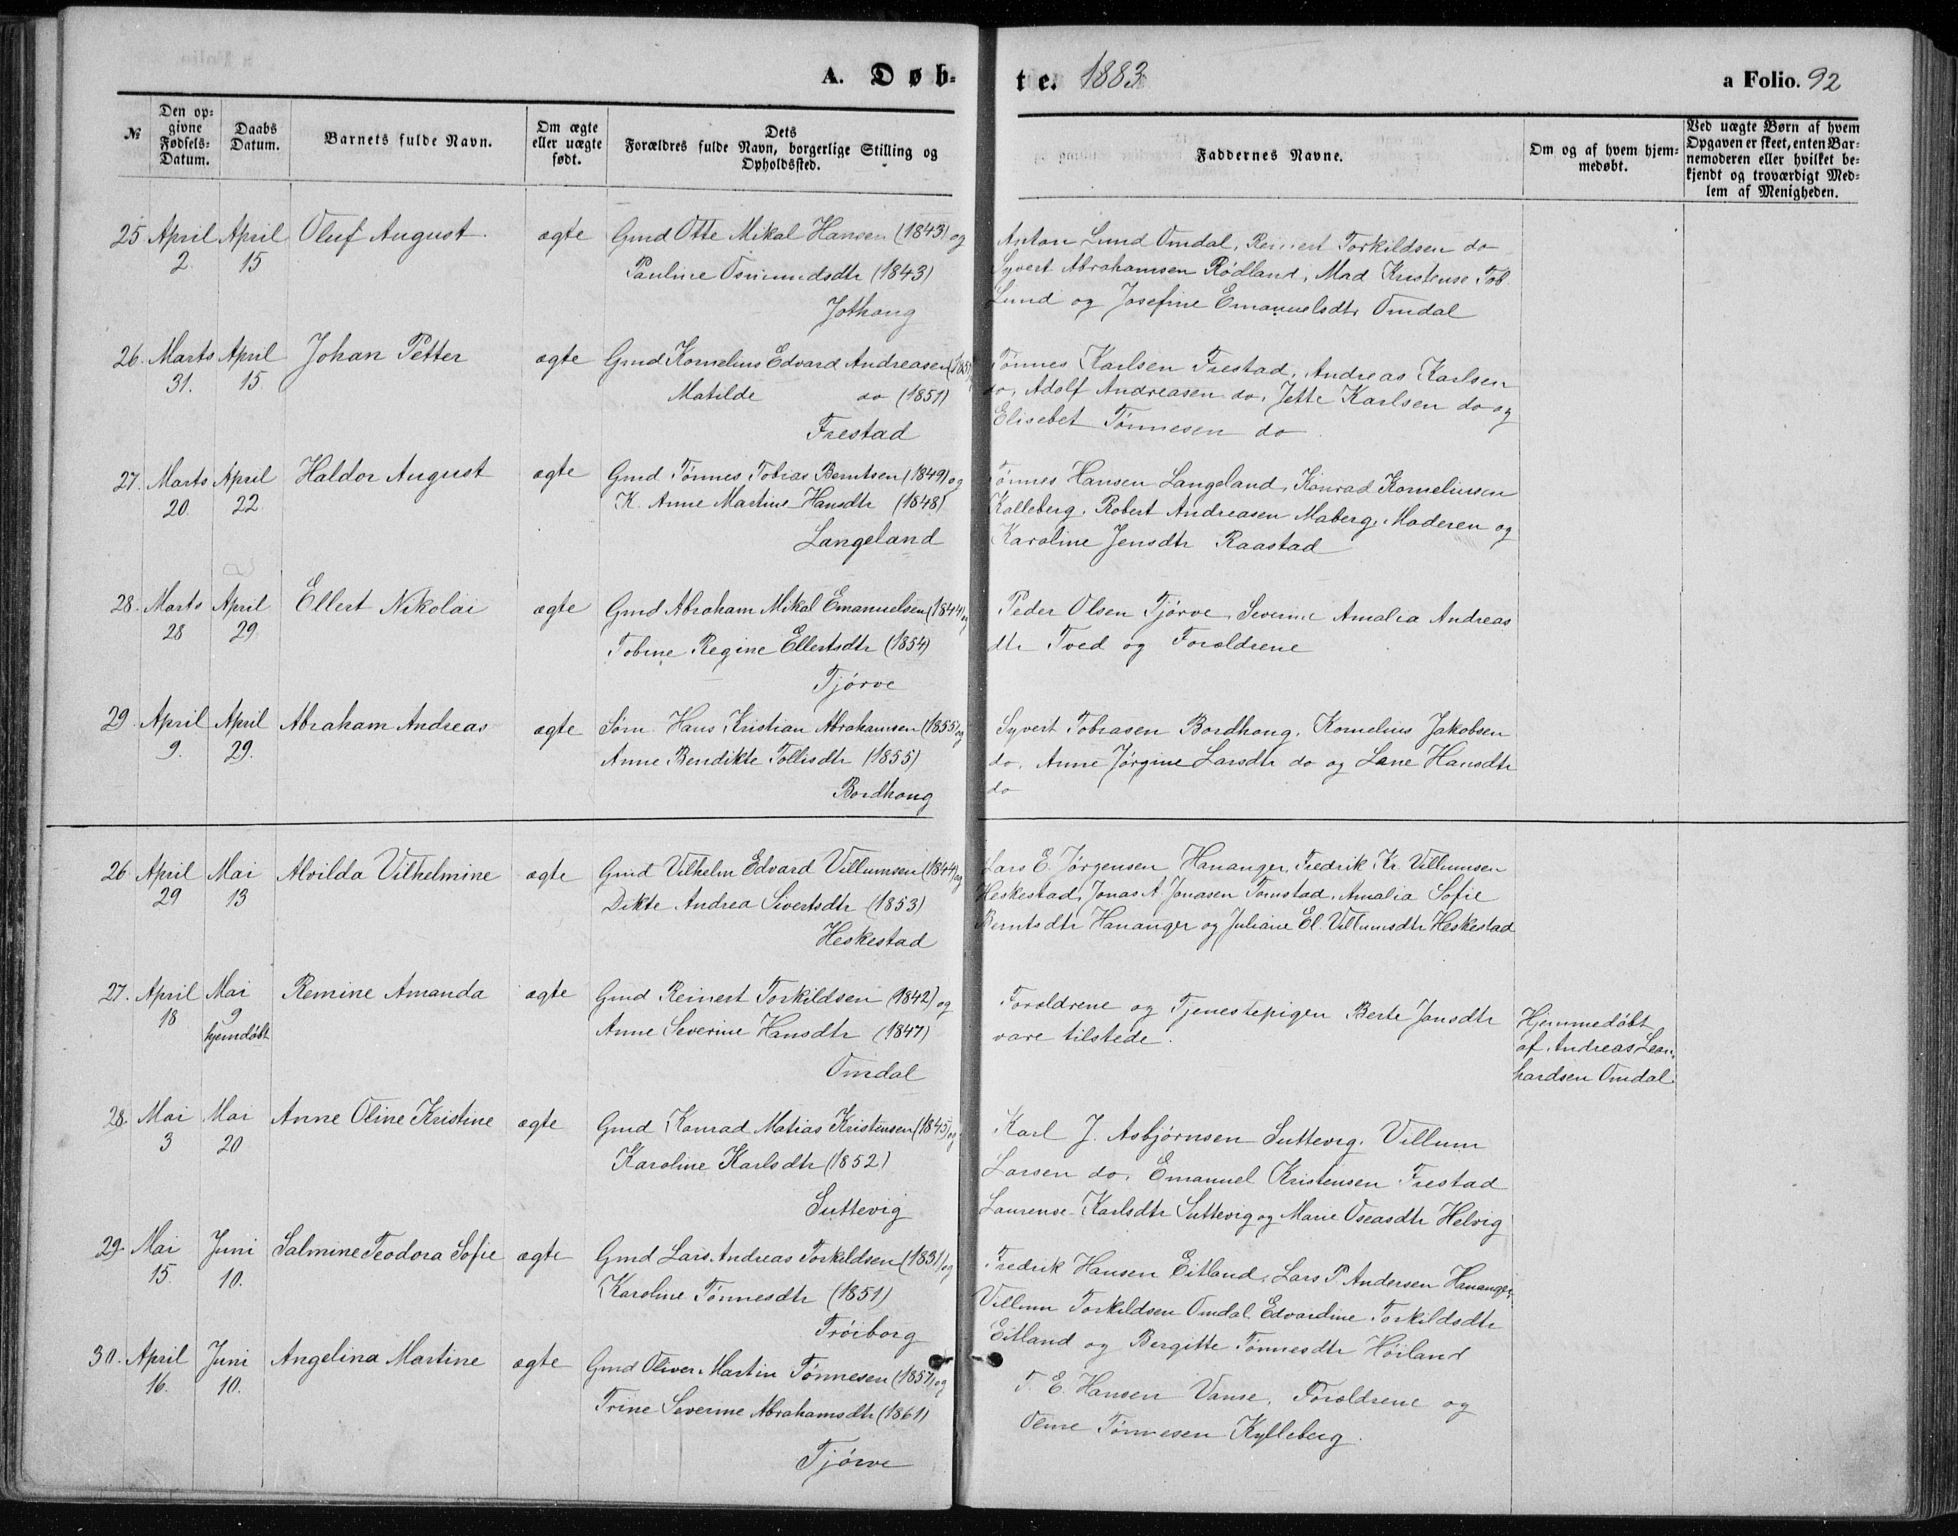 A. Døb-
te. 1883
a Folio. 92
№
Den op-
givne
Fødsels-
Datum.
Daabs
Datum.
Barnets fulde Navn.
Om ægte
eller uægte
født.
Dets
Forældres fulde Navn, borgerlige Stilling og
Opholdssted.
Faddernes Navne.
Om og af hvem hjem-
medøbt.
Ved uægte Børn af hvem
Opgaven er skeet, enten Bar-
nemoderen eller hvilket be-
kjendt og troværdigt Med-
lem af Menigheden.
25 April April Oluf August ægte Gmd Otte Mikal Hansen (1843) og
2. 15 Pauline Osmundsdtr (1843)
Jothoug
Anton Lund Omdal, Reinert Torkildsen do
Syvert Abrahamsen Rødland, Mad Kristense Tob.
Lund og Josefine Emanuelsdtr Omdal
26. Marts April Johan Petter ægte Gmd Kornelius Edvard Andreasen
31. 15. Matilde do (1851)
Frestad
Tønnes Karlsen Frestad, Andreas Karlsen
do, Adolf Andreasen do, Jette Karlsen do og
Elisebet Tønnesen do
27. Marts April Haldor August ægte Gmd Tønnes Tobias Berntsen (1849) og
20. 22. K. Anne Martine Hansdtr (1848)
Langeland
Tønnes Hansen Langeland, Konrad Korneliusen
Kalleberg, Robert Andreasen Maberg, Moderen og
Karoline Jensdtr Raastad
28. Marts April Ellert Nikolai ægte Gmd Abraham Mikal Emanuelsen (1844) og
28 29. Tobine Regine Ellertsdtr (1854)
Tjørve
Peder Olsen Tjørve, Severine Amalia Andreas
dtr Tved og Forældrene
29. April April Abraham Andreas ægte Søm. Hans Kristian Abrahamsen (1855) og
9. 29. Anne Bendikte Tollisdtr (1855)
Bordhoug
Syvert Tobiasen Bordhoug, Kornelius Jakobsen
do, Anne Jørgine Larsdtr do og Lene Hansdtr
do
26 April Mai Alvilda Vilhelmine ægte Gmd Vilhelm Edvard Villumsen (1844) og
29 13 Dikte Andrea Sivertsdtr (1853)
Heskestad
Lars E. Jørgensen Hananger, Fredrik Kr. Villumsen
Heskestad, Jonas A. Jonasen Tomstad, Amalia Sofie
Berntsdtr Hananger og Juliane El. Villumsdtr Heskestad
27. April Mai Remine Amanda ægte Gmd Reinert Torkildsen (1842) og
18 9 Anne Severine Hansdtr (1847)
hjemdøbt
Omdal
Forældrene og Tjenestepigen Berte Jansdtr
vare tilstede.
Hjemmedøbt
af Andreas Leon-
hardsen Omdal.
28. Mai Mai Anne Oline Kristine ægte Gmd Konrad Matias Kristensen (1845) og
3 20 Karoline Karlsdtr (1852)
Suttevig
Karl J. Asbjørnsen Suttevig, Villum
Larsen do, Emanuel Kristensen Frestad
Laurense Karlsdtr Suttevig og Marie Oseasdtr Helvig
29. Mai Juni Salmine Teodora Sofie ægte Gmd Lars Andreas Torkildsen (1831) og
15. 10. Karoline Tønnesdtr (1851)
Trøiborg
Fredrik Hansen Eitland, Lars P. Andersen Hananger,
Villum Torkildsen Omdal, Edvardine Torkildsdtr
Eitland og Bergitte Tønnesdtr Høiland
30. April Juni Angelina Martine ægte Gmd Oliver Martin Tønnesen (1857) og
16. 10. Trine Severine Abrahamsdtr (1861)
Tjørve
T. E. Hansen Vanse, Forældrene og
Oline Tønnesen Kylleberg.